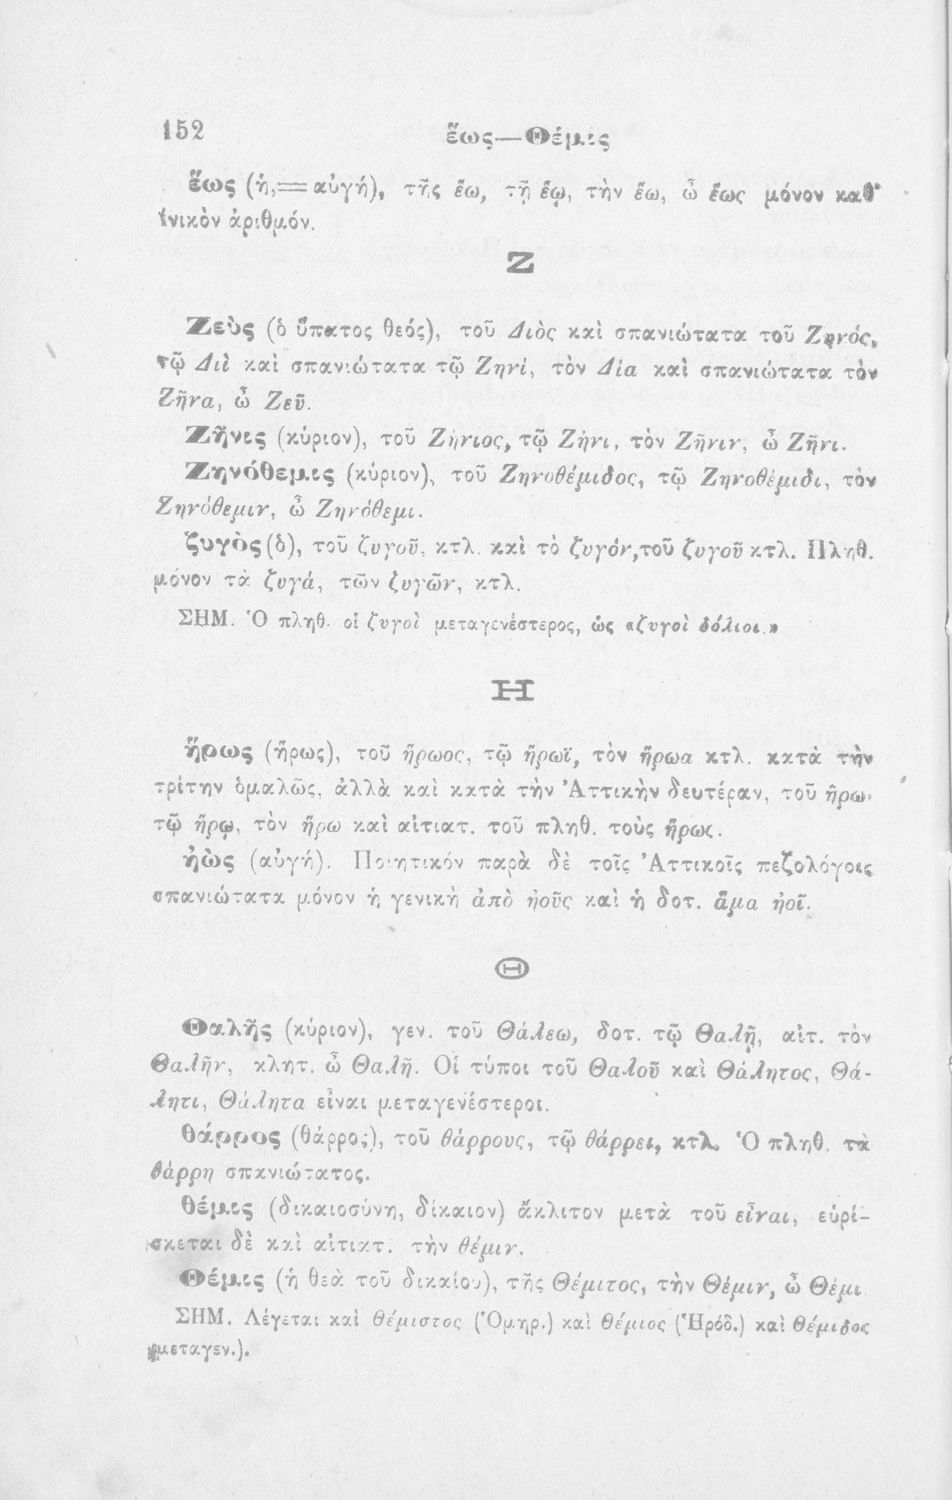 152
ἕως—Θέμις
ἕως (ἡ,=αὐγή), τῆς ἕω, τῇ ἕῳ, τὴν ἕω, ὦ ἕως μόνον καθ'
ἑνικὸν ἀριθμόν.
Ζ
Ζεὺς (ὁ ὕπατος θεός), τοῦ Διὸς καὶ σπανιώτατα τοῦ Ζηνός,
τῷ Διὶ καὶ σπανιώτατα τῷ Ζηνί, τὸν Δία καὶ σπανιώτατα τὸν
Ζῆνα, ὦ Ζεῦ.
Ζῆνις (κύριον), τοῦ Ζήνιος, τῷ Ζήνι, τὸν Ζῆνιν, ὦ Ζῆνι.
Ζηνόθεμις (κύριον), τοῦ Ζηνοθέμιδος, τῷ Ζηνοθέμιδι, τὸν
Ζηνόθεμιν, ὦ Ζηνόθεμι.
ζυγὸς (ὁ), τοῦ ζυγοῦ, κτλ. καὶ τὸ ζυγόν, τοῦ ζυγοῦ κτλ. Πληθ.
μόνον τὰ ζυγά, τῶν ζυγῶν, κτλ.
ΣΗΜ. Ὁ πληθ. οἱ ζυγοὶ μεταγενέστερος, ὡς «ζυγοὶ δόλιοι.»
Η
ἥρως (ἥρως), τοῦ ἥρωος, τῷ ἥρωϊ, τὸν ἥρωα κτλ. κατὰ τὴν
τρίτην ὁμαλῶς, ἀλλὰ καὶ κατὰ τὴν Ἀττικὴν δευτέραν, τοῦ ἥρω,
τῷ ἥρῳ, τὸν ἥρω καὶ αἰτιατ. τοῦ πληθ. τοὺς ἥρως.
ἠὼς (αὐγή). Ποιητικόν παρὰ δὲ τοῖς Ἀττικοῖς πεζολόγοις
σπανιώτατα μόνον ἡ γενικὴ ἀπὸ ἠοῦς καὶ ἡ δοτ. ἅμα ἠοῖ.
Θ
Θαλῆς (κύριον), γεν. τοῦ Θάλεω, δοτ. τῷ Θαλῇ, αἰτ. τὸν
Θαλῆν, κλητ. ὦ Θαλῆ. Οἱ τύποι τοῦ Θαλοῦ καὶ Θάλητος, Θά-
λητι, Θάλητα εἶναι μεταγενέστεροι.
θάρρος (θάρρος), τοῦ θάρρους, τῷ θάρρει, κτλ. Ὁ πληθ. τὰ
θάρρη σπανιώτατος.
θέμις (δικαιοσύνη, δίκαιον) ἄκλιτον μετὰ τοῦ εἶναι, εὑρί-
σκεται δὲ καὶ αἰτιατ. τὴν θέμιν.
Θέμις (ἡ θεὰ τοῦ δικαίου), τῆς Θέμιτος, τὴν Θέμιν, ὦ Θέμι
ΣΗΜ. Λέγεται καὶ Θέμιστος (Ὁμηρ.) καὶ Θέμιος (Ἡρόδ.) καὶ Θέμιδος
(μεταγεν.).